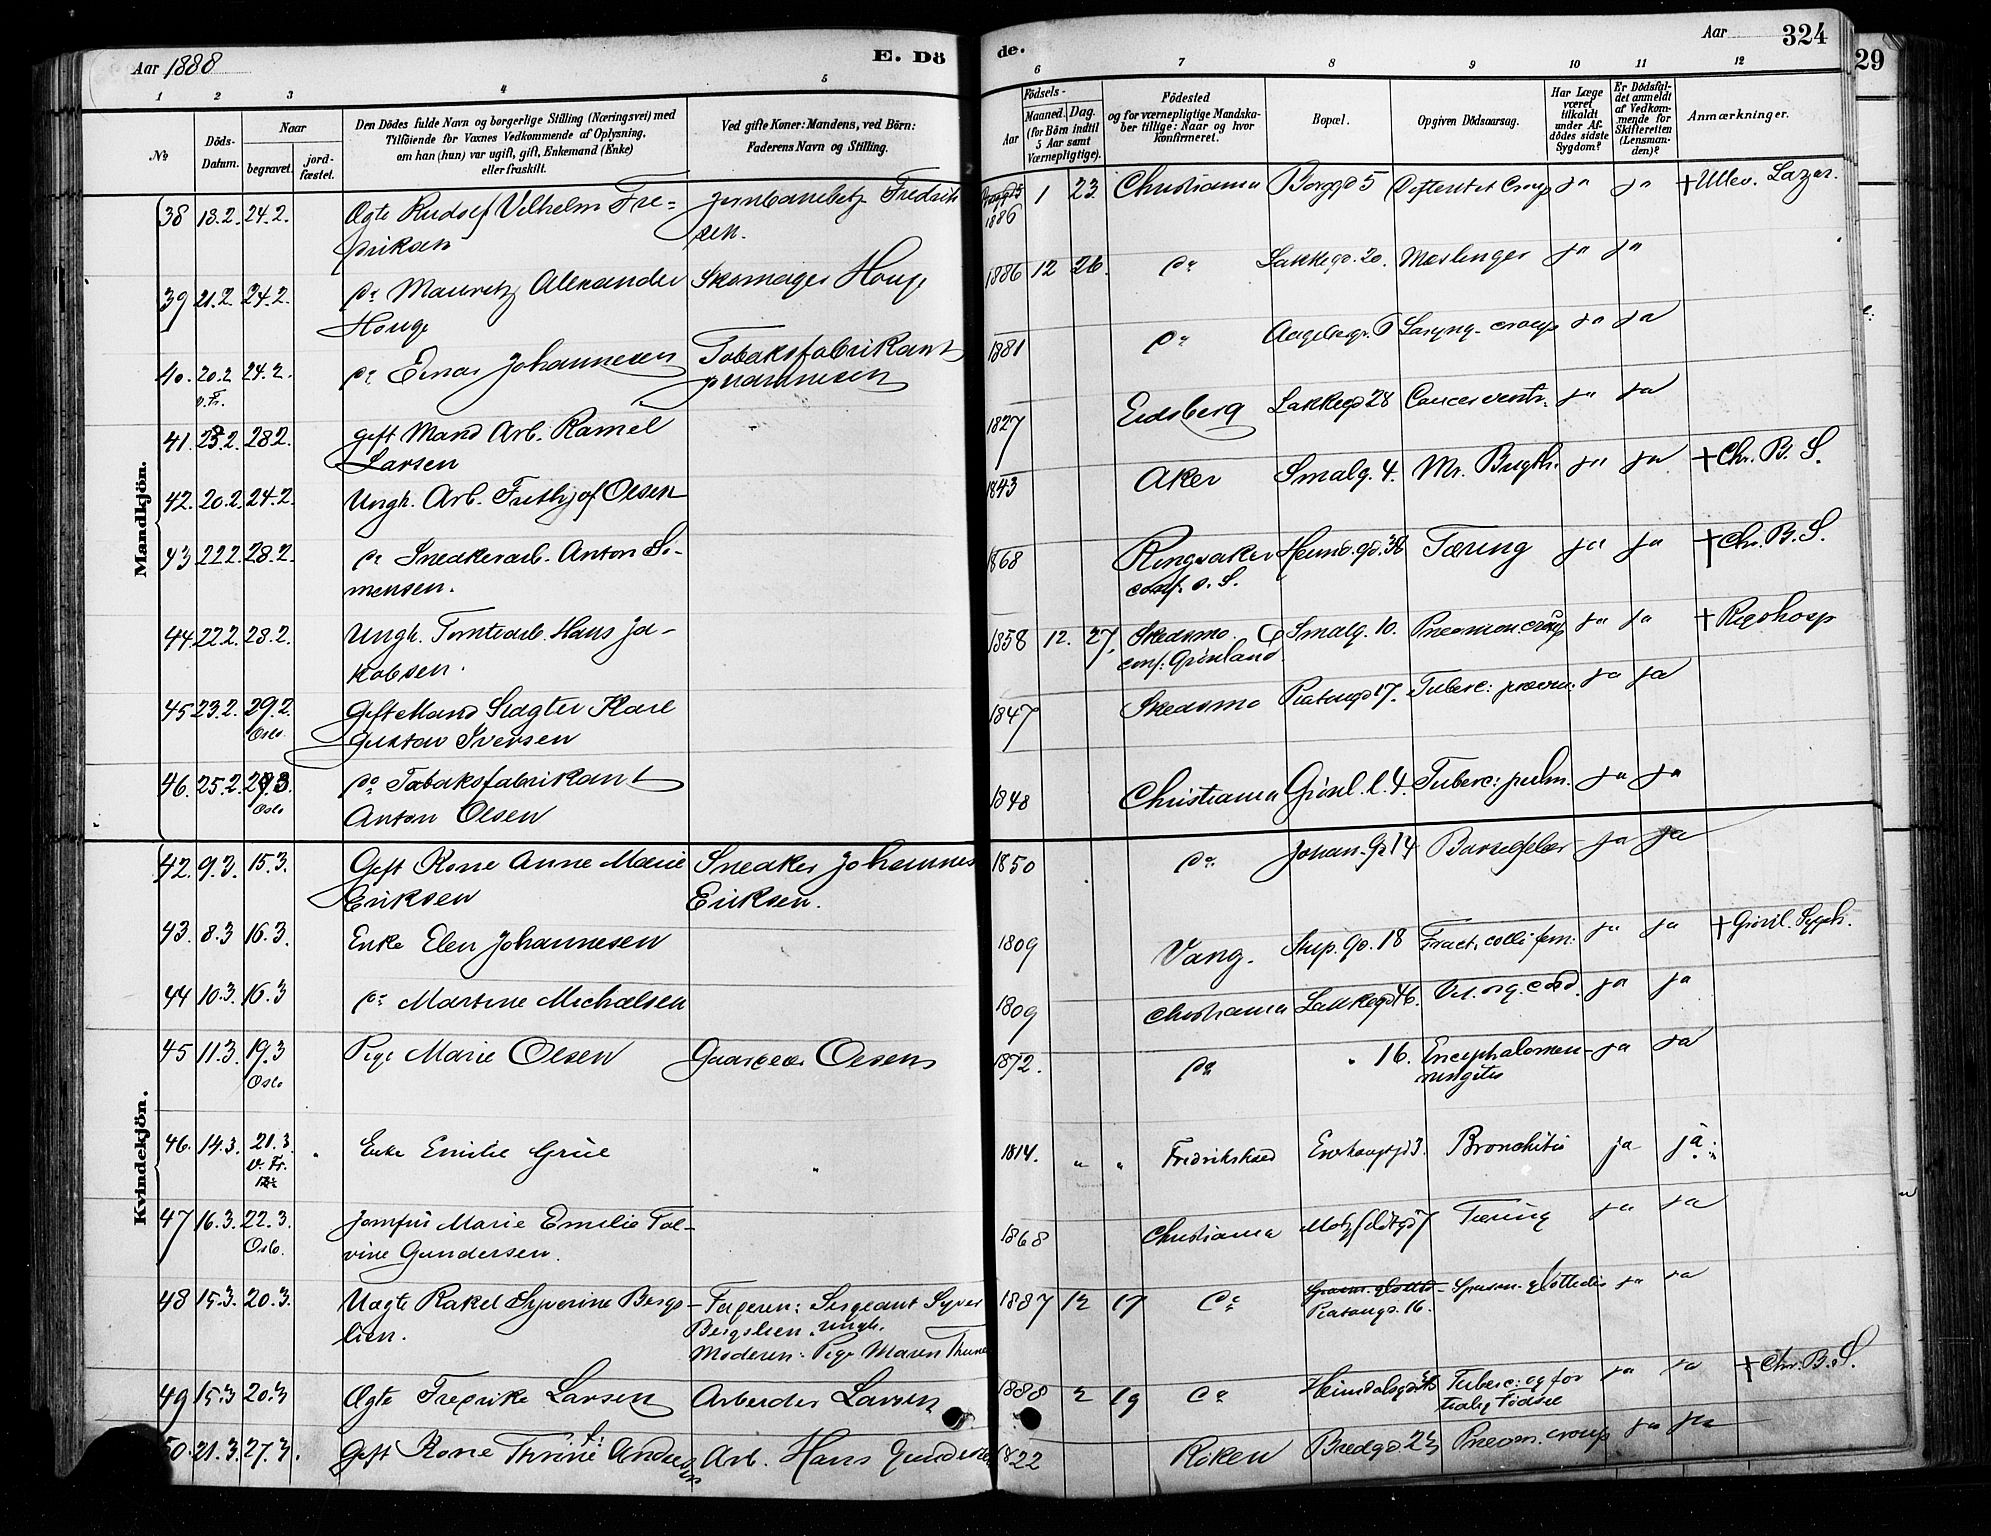 Aar 1888
E. Dö
de.
Aar
324
29
1 2 3 4 5
6 7 8 9 10 11 12
No
Döds-
Datum.
Naar
begravet.
jord-
fæstet.
Den Dödes fulde Navn og borgerlige Stilling (Næringsvei) med
Tilföiende for Voxnes Vedkommende af Oplysning,
om han (hun) var ugift, gift, Enkemand (Enke)
eller fraskilt.
Ved gifte Koner: Mandens, ved Börn:
Faderens Navn og Stilling.
Födsels-
Aar
Maaned. Dag.
(for Börn indtil
5 Aar samt
Værnepligtige).
Födested
og for værnepligtige Mandska-
ber tillige: Naar og hvor
konfirmeret.
Bopæl.
Opgiven Dödsaarsag.
Har Læge
været
tilkaldt
under Af-
dödes sidste
Sygdom?
Er Dödsfal-
det anmeldt
af Vedkom-
mende for
Skifteretten
(Lensman-
den)?
Anmærkninger.
Mandkjön.
38 13.2. 24.2. Ægte Rudolf Vilhelm Fre- Jernbanebetj. Fredrik 1886 1 23 Christiania Borggd 5 ja ja † Ullev. Lazar.
driksen sen.
39 21.2 24.2. do Mauritz Alexander Skomager Houge 1886 12 26. do Lakkegd. 20. Meslinger ja ja
Houge
40. 20.2 24.2. do Einar Johannesen Tobaksfabrikant 1881 do Laryng. croup ja ja
v. Fr. Johannesen
41. 23.2. 28.2. gift Mand Arb. Ramel 1827 Eidsberg Lakkegd 28 Cancer ventr. ja ja
Larsen
42. 20.2. 24.2. Ungk. Arb. Frithjof Olsen 1843 Aker Smalg. 4. Mb. Brigth. ja ja † Chr. B. S.
43 22.2. 28.2 do Snedkerarb. Anton Si- 1868 Ringsaker Heimd. gd. 38 Tæring ja ja † Chr. B. S.
mensen. conf. s. S.
44 22.2. 28.2. Ungk. Tomtearb. Hans Ja- 1858 12. 27. Skedsmo Smalg. 10. Pneumon. croup ja ja † Rigshosp
kobsen. conf. Grønland
45 23.2. 29.2. Gift Mand Slagter Karl 1847 Skedsmo Platougd 17. Tuberc: pulm. ja ja
Oslo. Gustav Iversen
46. 25.2. do Tobaksfabrikant 1848 Christiania Grønl. l. 4. Tuberc: pulm. ja ja
Oslo Anton Olsen
Kvindekjön.
42. 9.3. 15.3. Gift Kone Anne Marie Snedker Johannes 1850 do Johan. gd 14 Barselfeber ja ja
Eriksen Eriksen.
43. 8.3 16.3. Enke Elen Johannesen 1809 Vang. Stup. gd. 18 Fract. colli fem: ja ja † Grønl. Sygeh.
44 10.3. 16.3 do Martine Michaelsen 1809 Christiania Lakkegd 46. Vit. org. cord. ja ja
45 11.3. 19.3 Pige Marie Olsen Gaardeier Olsen 1872. do " 16. Encephalomen- ja ja
Oslo ningitis
46. 14.3. 21.3 Enke Emilie Grüe " 1814. " " Fredrikshald Enerhaugsgd 3. Bronchitis ja ja
v. Fr.
47 16.3. 22.3. Jomfru Marie Emilie Tol- 1868 Christiania Motzfeldtsgd 7 Tæring ja ja
Oslo. vine Gundersen.
48 15.3. 20.3. Uægte Rakel Syverine Bergs- Faderen: Sergeant Syver 1887 12 17 do Spasm. glottidis ja ja
lien. Bergslien, ungk. Platougd. 16.
Moderen: Pige Maren Thune
49 15.3 20.3 Ægte Fredrike Larsen Arbeider Larsen 1888 2 19 do Heimdalsgd Tuberc: og for ja ja † Chr. B. S.
tidlig Fødsel
50. 21.3. 27.3. Gift Kone Thrine Anders Arb. Hans Gundersen 1822 Røken Bredgd 23 Pneum. croup ja ja